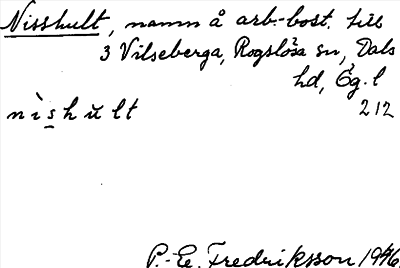 Nisshult, namn å arb.-bost. till
3 Vilseberga, Rogslösa sn, Dals
hd, Ög. l
nìshŭlt 212
P.-E. Fredriksson 1946.